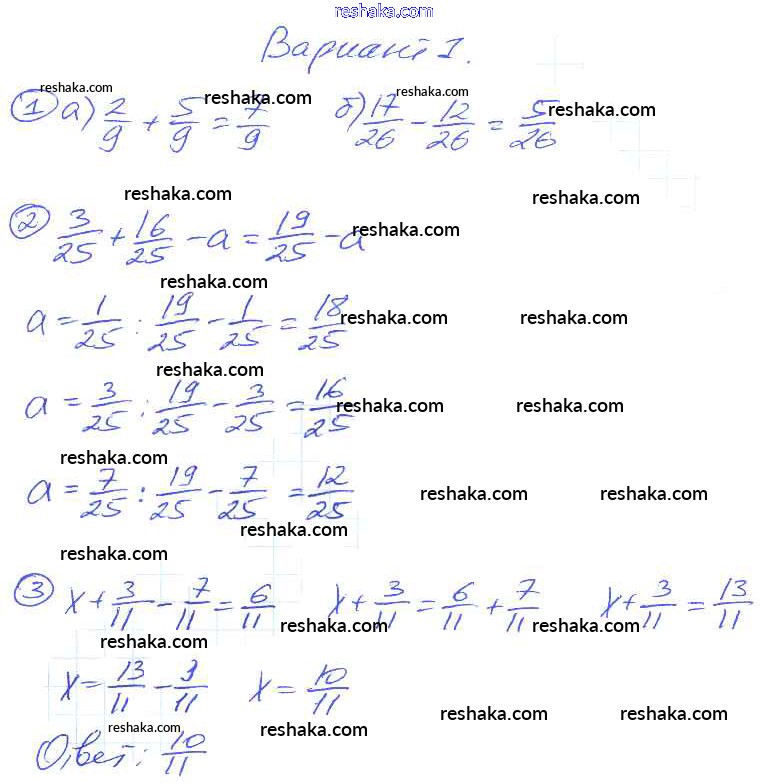 reshaka.com
Вариант 1.
reshaka.com reshaka.com reshaka.com reshaka.com
① а) 2/9 + 5/9 = 7/9 б) 17/26 - 12/26 = 5/26
reshaka.com reshaka.com
② 3/25 + 16/25 - a = 19/25 - a
reshaka.com
reshaka.com
a = 1/25 : 19/25 - 1/25 = 18/25
reshaka.com reshaka.com
reshaka.com
a = 3/25 : 19/25 - 3/25 = 16/25
reshaka.com reshaka.com
reshaka.com
a = 7/25 : 19/25 - 7/25 = 12/25
reshaka.com reshaka.com
reshaka.com
reshaka.com
③ x + 3/11 - 7/11 = 6/11 x + 3/11 = 6/11 + 7/11 x + 3/11 = 13/11
reshaka.com reshaka.com
reshaka.com
x = 13/11 - 3/11 x = 10/11
reshaka.com reshaka.com
reshaka.com reshaka.com
Ответ: 10/11